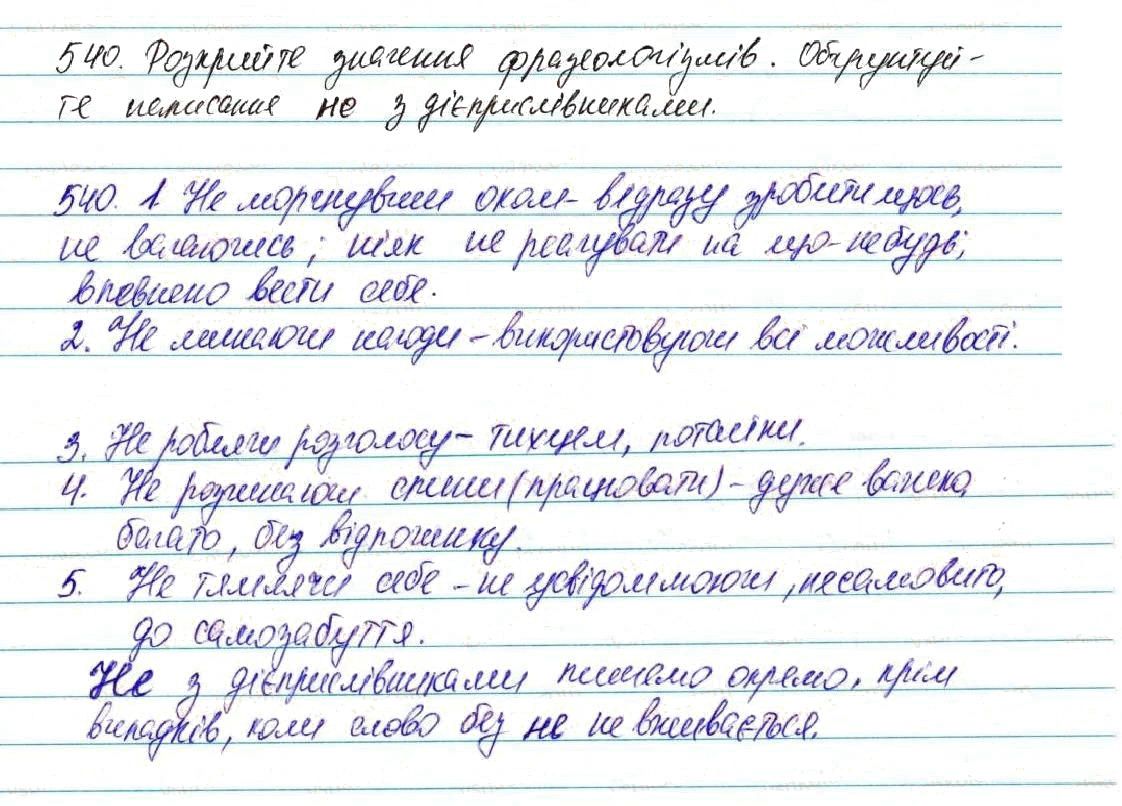 540. Розкрийте значення фразеологізмів. Обґрунтуй-
те написання не з дієприслівниками.
540. 1. Не моргнувши оком - відразу зробити щось,
не вагаючись; ніяк не реагувати на що-небудь;
впевнено вести себе.
2. Не минаючи нагоди - використовуючи всі можливості.
3. Не роблячи розголосу - тихцем, потайки.
4. Не розгинаючи спини (працювати) - дуже важко,
багато, без відпочинку.
5. Не тямлячи себе - не усвідомлюючи, несамовито,
до самозабуття.
Не з дієприслівниками пишемо окремо, крім
випадків, коли слово без не не вживається.